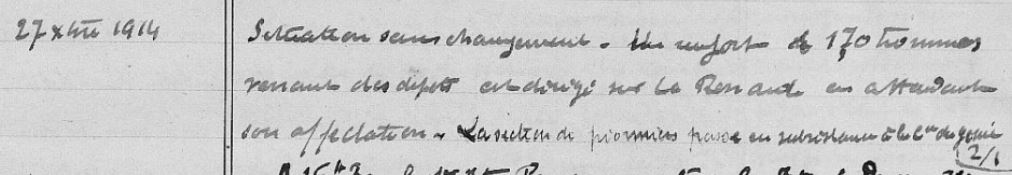 27 xbre 1914
Situation sans changement. Un renfort de 170 hommes
venant des dépôts est dirigé sur Le Renaude en attendant
son affectation. La section de pionniers passe en subsistance à la Cie du génie
2/1